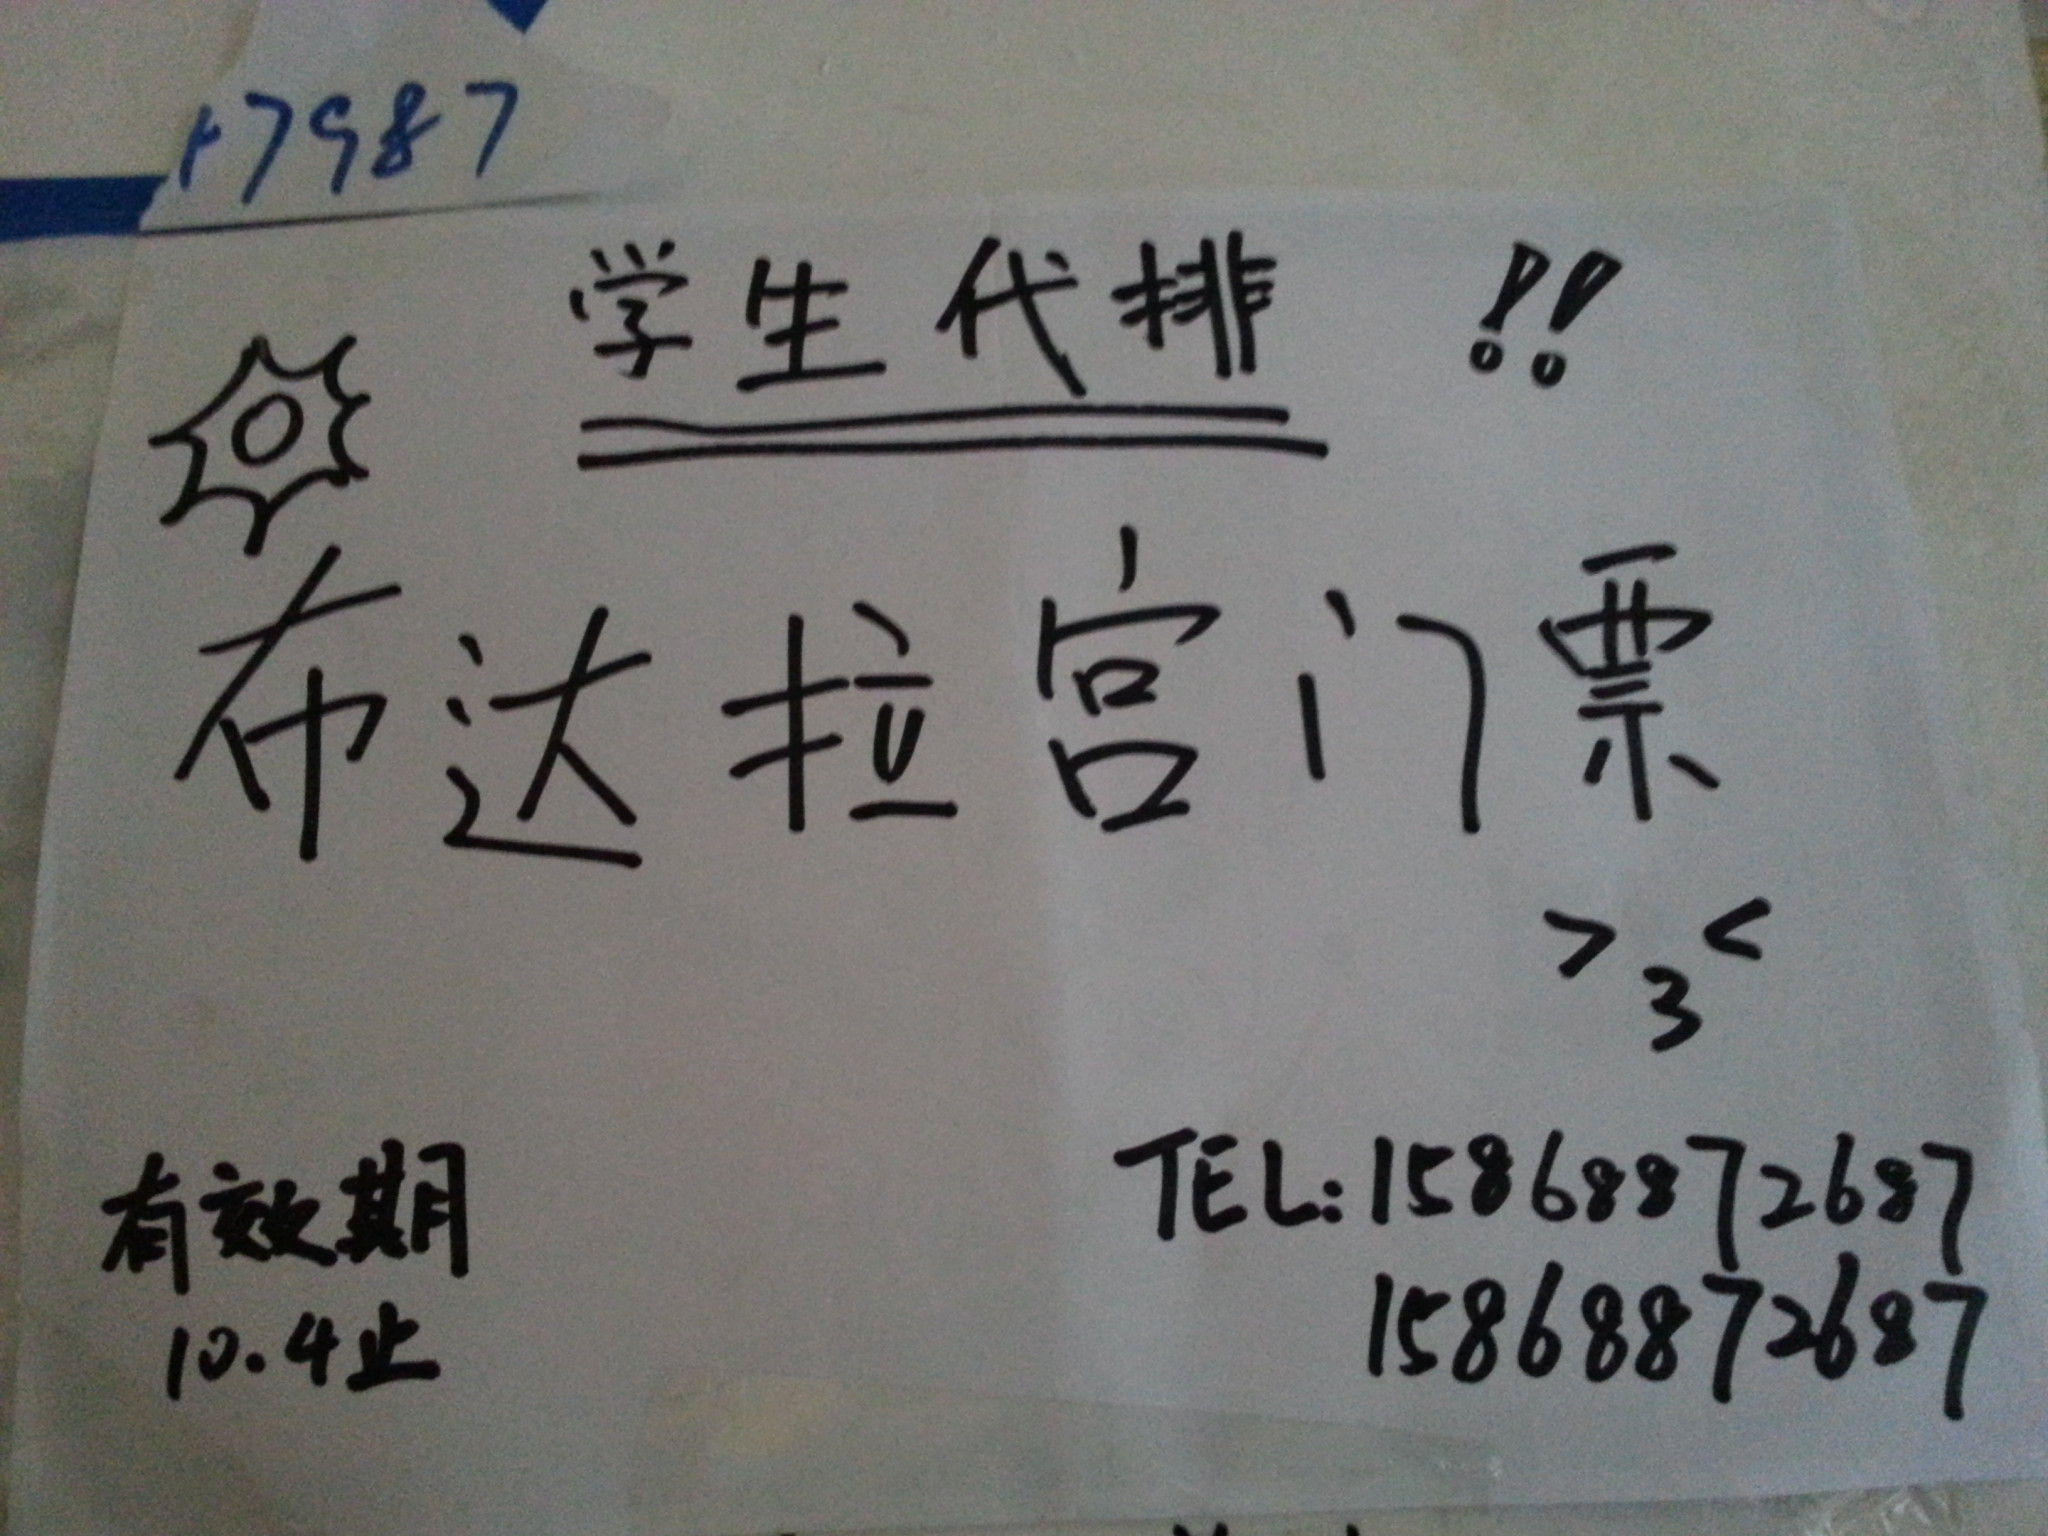 17987
学生代排!!
布达拉宫门票
>3<
有效期
10.4止
TEL:15868872687
15868872687